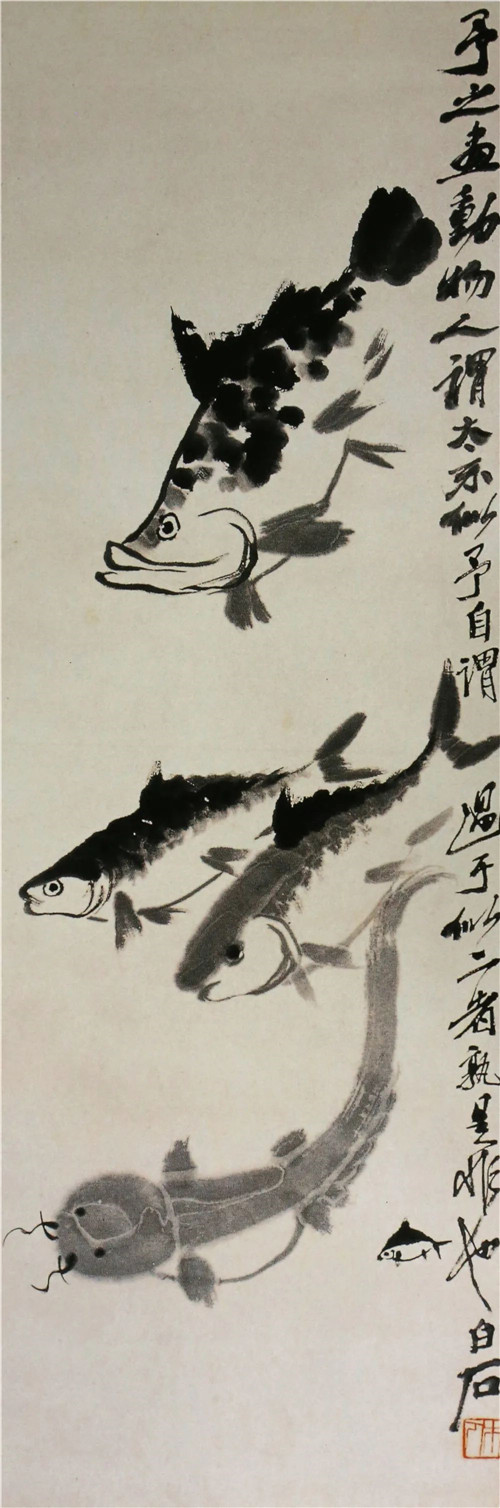 予之畫動物人謂太不似予自謂過于似二者孰是非也白石